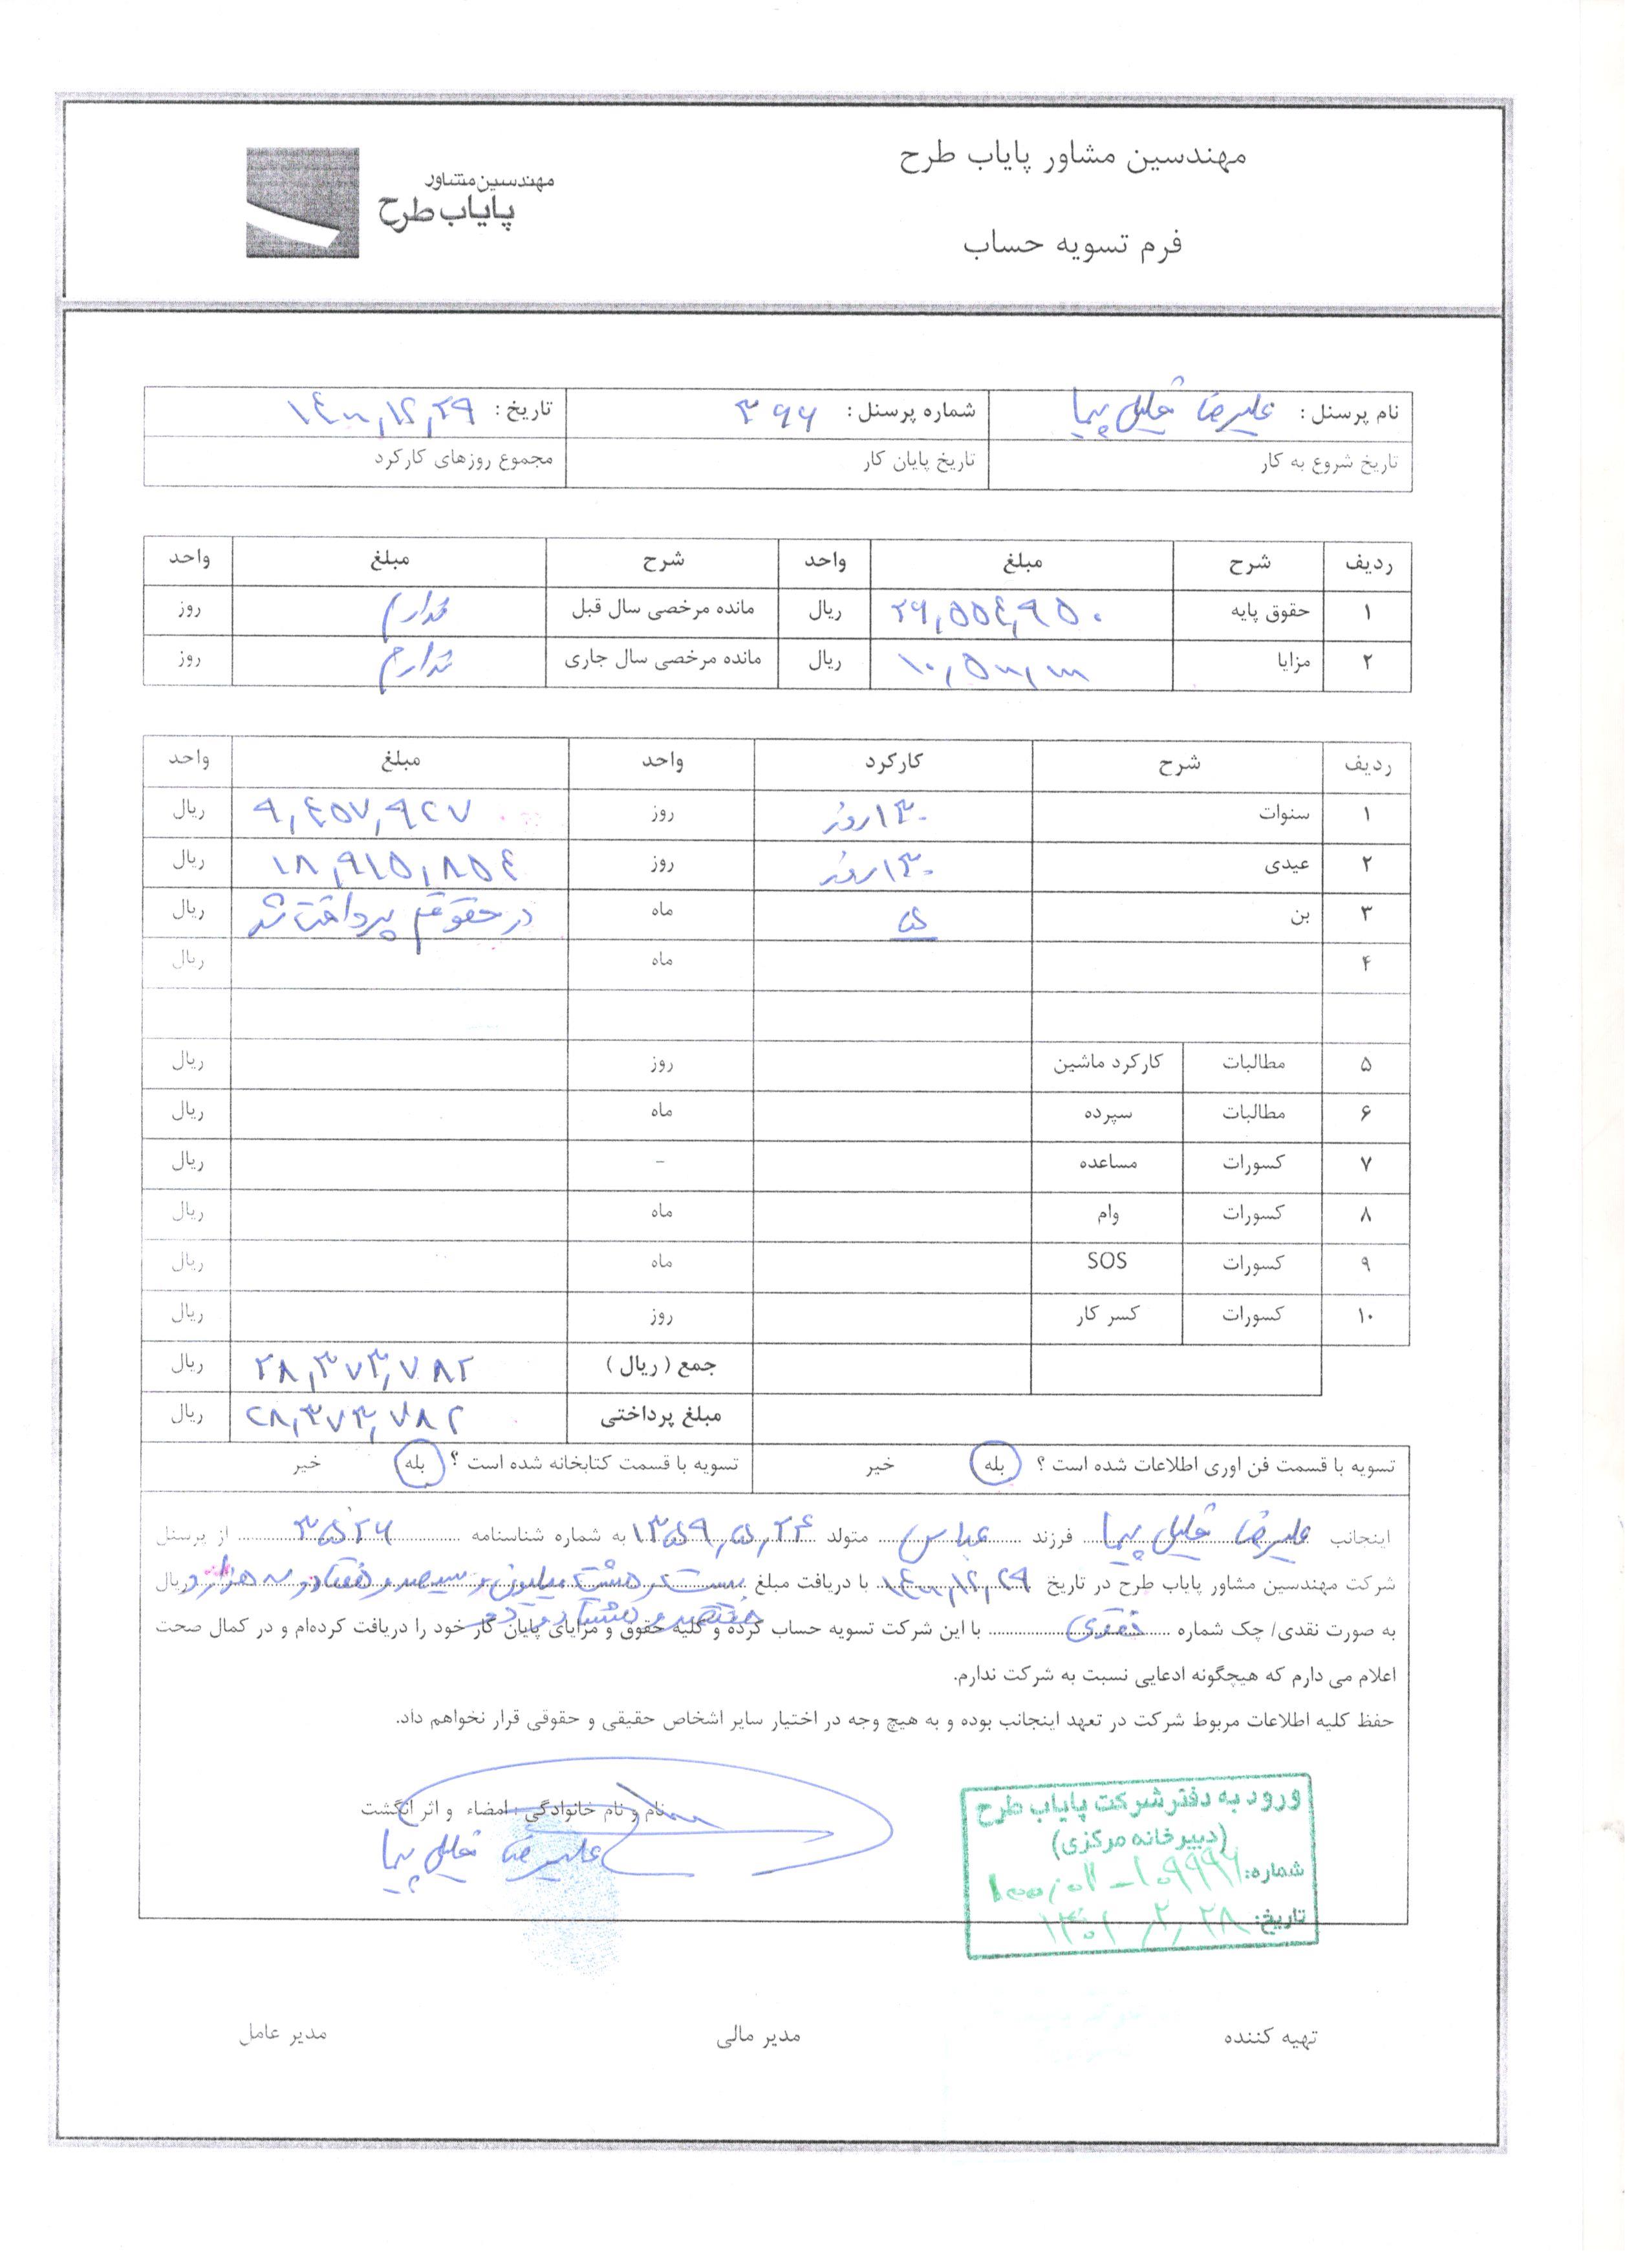 مهندسین مشاور پایاب طرح
مهندسین مشاور
پایاب طرح
فرم تسویه حساب
نام پرسنل : علیرضا خلیل پیما شماره پرسنل : ۳۹۶ تاریخ : ۱۴۰۰,۱۲,۲۹
تاریخ شروع به کار تاریخ پایان کار مجموع روزهای کارکرد
ردیف شرح مبلغ واحد شرح مبلغ واحد
۱ حقوق پایه ۲۶,۵۵۴,۹۵۰ ریال مانده مرخصی سال قبل ندارم روز
۲ مزایا ۱۰,۵۰۰,۰۰۰ ریال مانده مرخصی سال جاری ندارم روز
ردیف شرح کارکرد واحد مبلغ واحد
۱ سنوات ۱۳۰ روز روز ۹,۴۵۷,۹۲۷ ریال
۲ عیدی ۱۳۰ روز روز ۱۸,۹۱۵,۸۵۴ ریال
۳ بن ماه در حقوقم پرداخت شد ریال
۴ ماه ریال
۵ مطالبات کارکرد ماشین روز ریال
۶ مطالبات سپرده ماه ریال
۷ کسورات مساعده - ریال
۸ کسورات وام ماه ریال
۹ کسورات SOS ماه ریال
۱۰ کسورات کسر کار روز ریال
جمع ( ریال ) ۲۸,۳۷۳,۷۸۲ ریال
مبلغ پرداختی ۲۸,۳۷۳,۷۸۲ ریال
تسویه با قسمت فن اوری اطلاعات شده است ؟ بله خیر تسویه با قسمت کتابخانه شده است ؟ بله خیر
اینجانب علیرضا خلیل پیما فرزند عباس متولد ۱۳۵۹,۵,۲۴ به شماره شناسنامه ۳۵۲۶ از پرسنل
شرکت مهندسین مشاور پایاب طرح در تاریخ ۱۴۰۰,۱۲,۲۹ با دریافت مبلغ بیست و هشت میلیون و سیصد و هفتاد و سه هزار و ریال
هفتصد و هشتاد و دو
به صورت نقدی/ چک شماره نقدی با این شرکت تسویه حساب کرده و کلیه حقوق و مزایای پایان کار خود را دریافت کرده‌ام و در کمال صحت
اعلام می دارم که هیچگونه ادعایی نسبت به شرکت ندارم.
حفظ کلیه اطلاعات مربوط شرکت در تعهد اینجانب بوده و به هیچ وجه در اختیار سایر اشخاص حقیقی و حقوقی قرار نخواهم داد.
نام و نام خانوادگی ، امضاء و اثر انگشت
علیرضا خلیل پیما
ورود به دفتر شرکت پایاب طرح
(دبیرخانه مرکزی)
شماره:
تاریخ: ۱۴۰۱,۲,۲۸
تهیه کننده مدیر مالی مدیر عامل